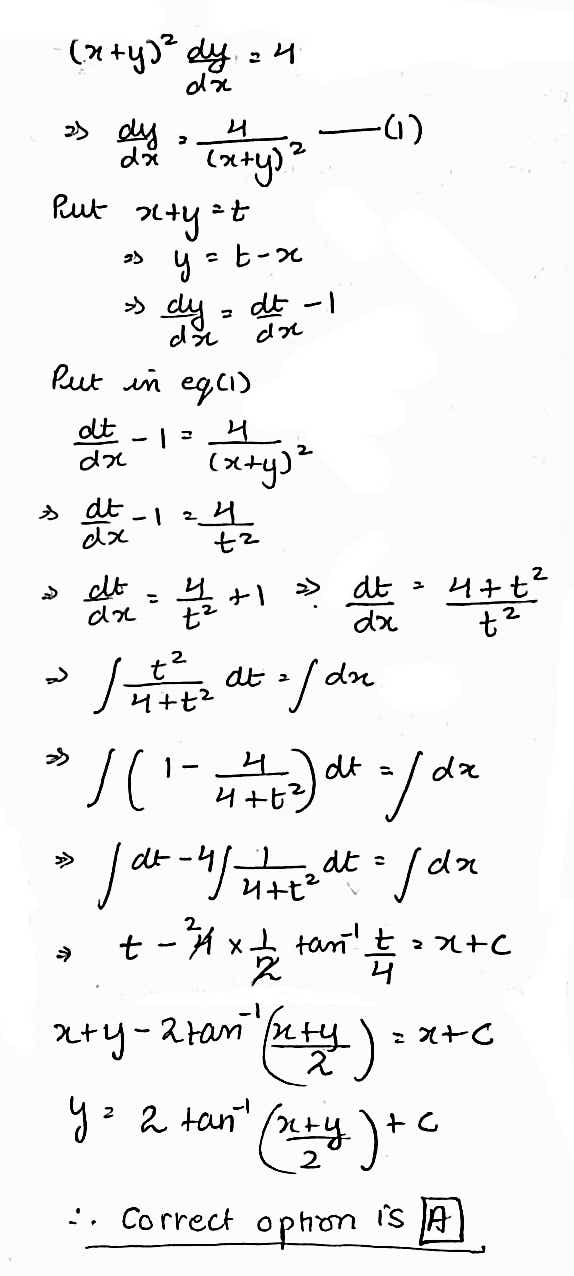 (x+y)² dy/dx = 4
⇒ dy/dx = 4/(x+y)² —(1)
Put x+y = t
⇒ y = t-x
⇒ dy/dx = dt/dx - 1
Put in eq(1)
dt/dx - 1 = 4/(x+y)²
⇒ dt/dx - 1 = 4/t²
⇒ dt/dx = 4/t² + 1 ⇒ dt/dx = 4+t²/t²
⇒ ∫ t²/4+t² dt = ∫ dx
⇒ ∫ (1 - 4/4+t²) dt = ∫ dx
⇒ ∫ dt - 4∫ 1/4+t² dt = ∫ dx
⇒ t - ²4 × 1/2 tan⁻¹ t/4 = x+c
x+y - 2 tan⁻¹ (x+y/2) = x+c
y = 2 tan⁻¹ (x+y/2) + c
∴ Correct option is A